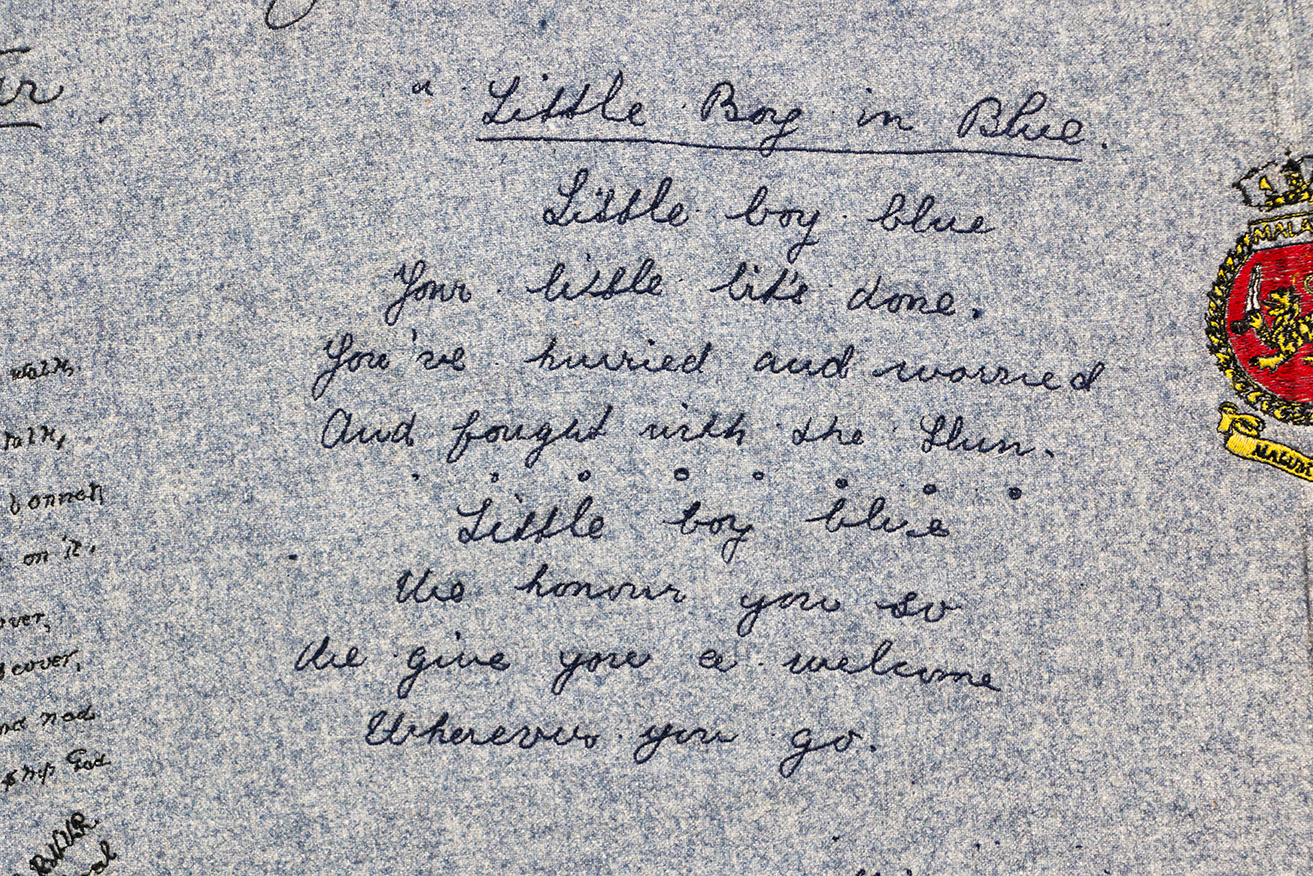 " Little Boy in Blue.
Little boy blue
Your little bit's done.
You've hurried and worried
And fought with the Hun.
Little boy blue
We honour you so
We give you a welcome
Wherever you go.
walk,
talk,
bonnet
on it.
over,
and nod
God